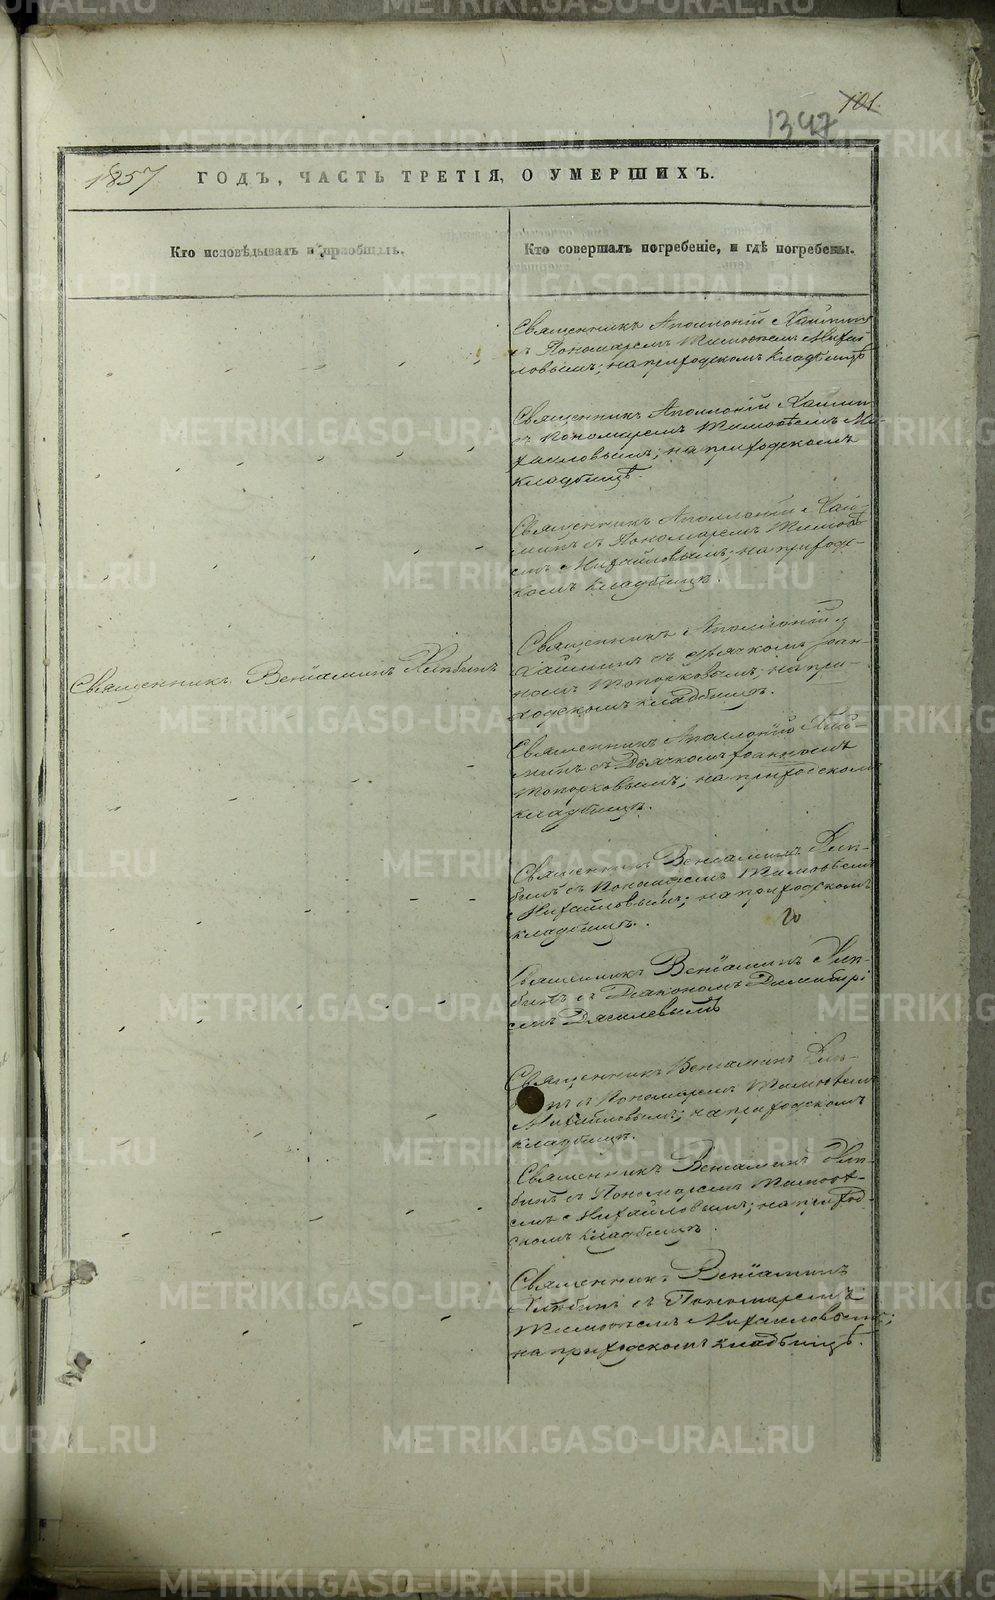 101
1347
1857 ГОДЪ, ЧАСТЬ ТРЕТІЯ, О УМЕРШИХЪ.
Кто исповѣдывалъ и пріобщалъ.
Кто совершалъ погребеніе, и гдѣ погребены.
Священникъ Аполлоній
съ Пономаремъ Тимоѳеемъ Михай-
ловымъ; на приходскомъ кладбищѣ
Священникъ Аполлоній
съ Пономаремъ Тимоѳеемъ Ми-
хайловымъ; на приходскомъ
кладбищѣ.
Священникъ Аполлоній
съ Пономаремъ Тимоѳе-
емъ Михайловымъ; на приход-
комъ кладбищѣ.
Священникъ Аполлоній
съ дьячкомъ Іоан-
номъ Топорковымъ; на при-
ходскомъ кладбищѣ.
Священникъ Веніаминъ
Священникъ Аполлоній
съ Дьячкомъ Іоанномъ
Топорковымъ; на приходскомъ
кладбищѣ.
Священникъ Веніаминъ
съ Пономаремъ Тимоѳеемъ
Михайловымъ; на приходскомъ
кладбищѣ.
Священникъ Веніаминъ
съ Діакономъ Димитрі-
емъ
Священникъ Веніаминъ
съ Пономаремъ Тимоѳеемъ
Михайловымъ; на приходскомъ
кладбищѣ.
Священникъ Веніаминъ
съ Пономаремъ Тимоѳе-
емъ Михайловымъ; на приход-
скомъ кладбищѣ.
Священникъ Веніаминъ
съ Пономаремъ
Тимоѳеемъ Михайловымъ;
на приходскомъ кладбищѣ.
METRIKI.GASO-URAL.RU